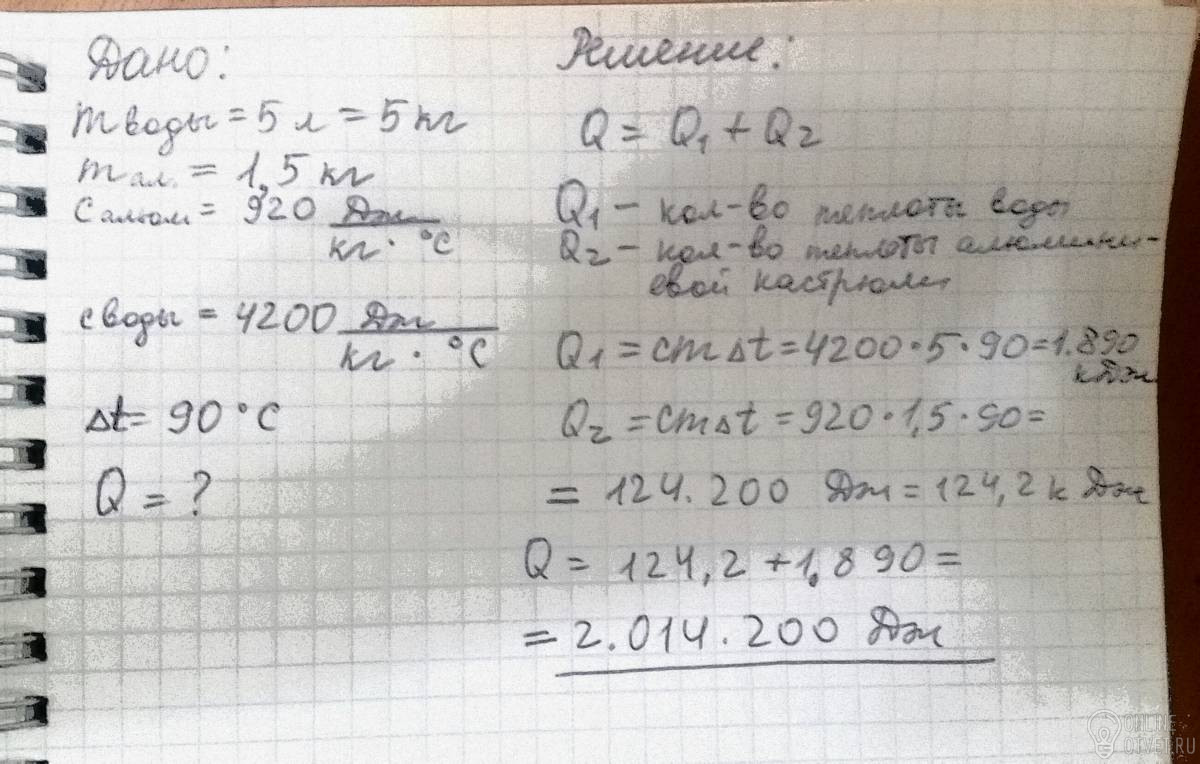 Дано:
m воды = 5 л = 5 кг
m ал. = 1,5 кг
С алюм = 920 Дж
кг · °С
с воды = 4200 Дж
кг · °С
Δt = 90 °С
Q = ?
Решение:
Q = Q₁ + Q₂
Q₁ – кол-во теплоты воды
Q₂ – кол-во теплоты алюмини-
евой кастрюли
Q₁ = cmΔt = 4200 · 5 · 90 = 1.890
кДж
Q₂ = cmΔt = 920 · 1,5 · 90 =
= 124.200 Дж = 124,2 кДж
Q = 124,2 + 1.890 =
= 2.014.200 Дж
ONLINE
OTVET.RU